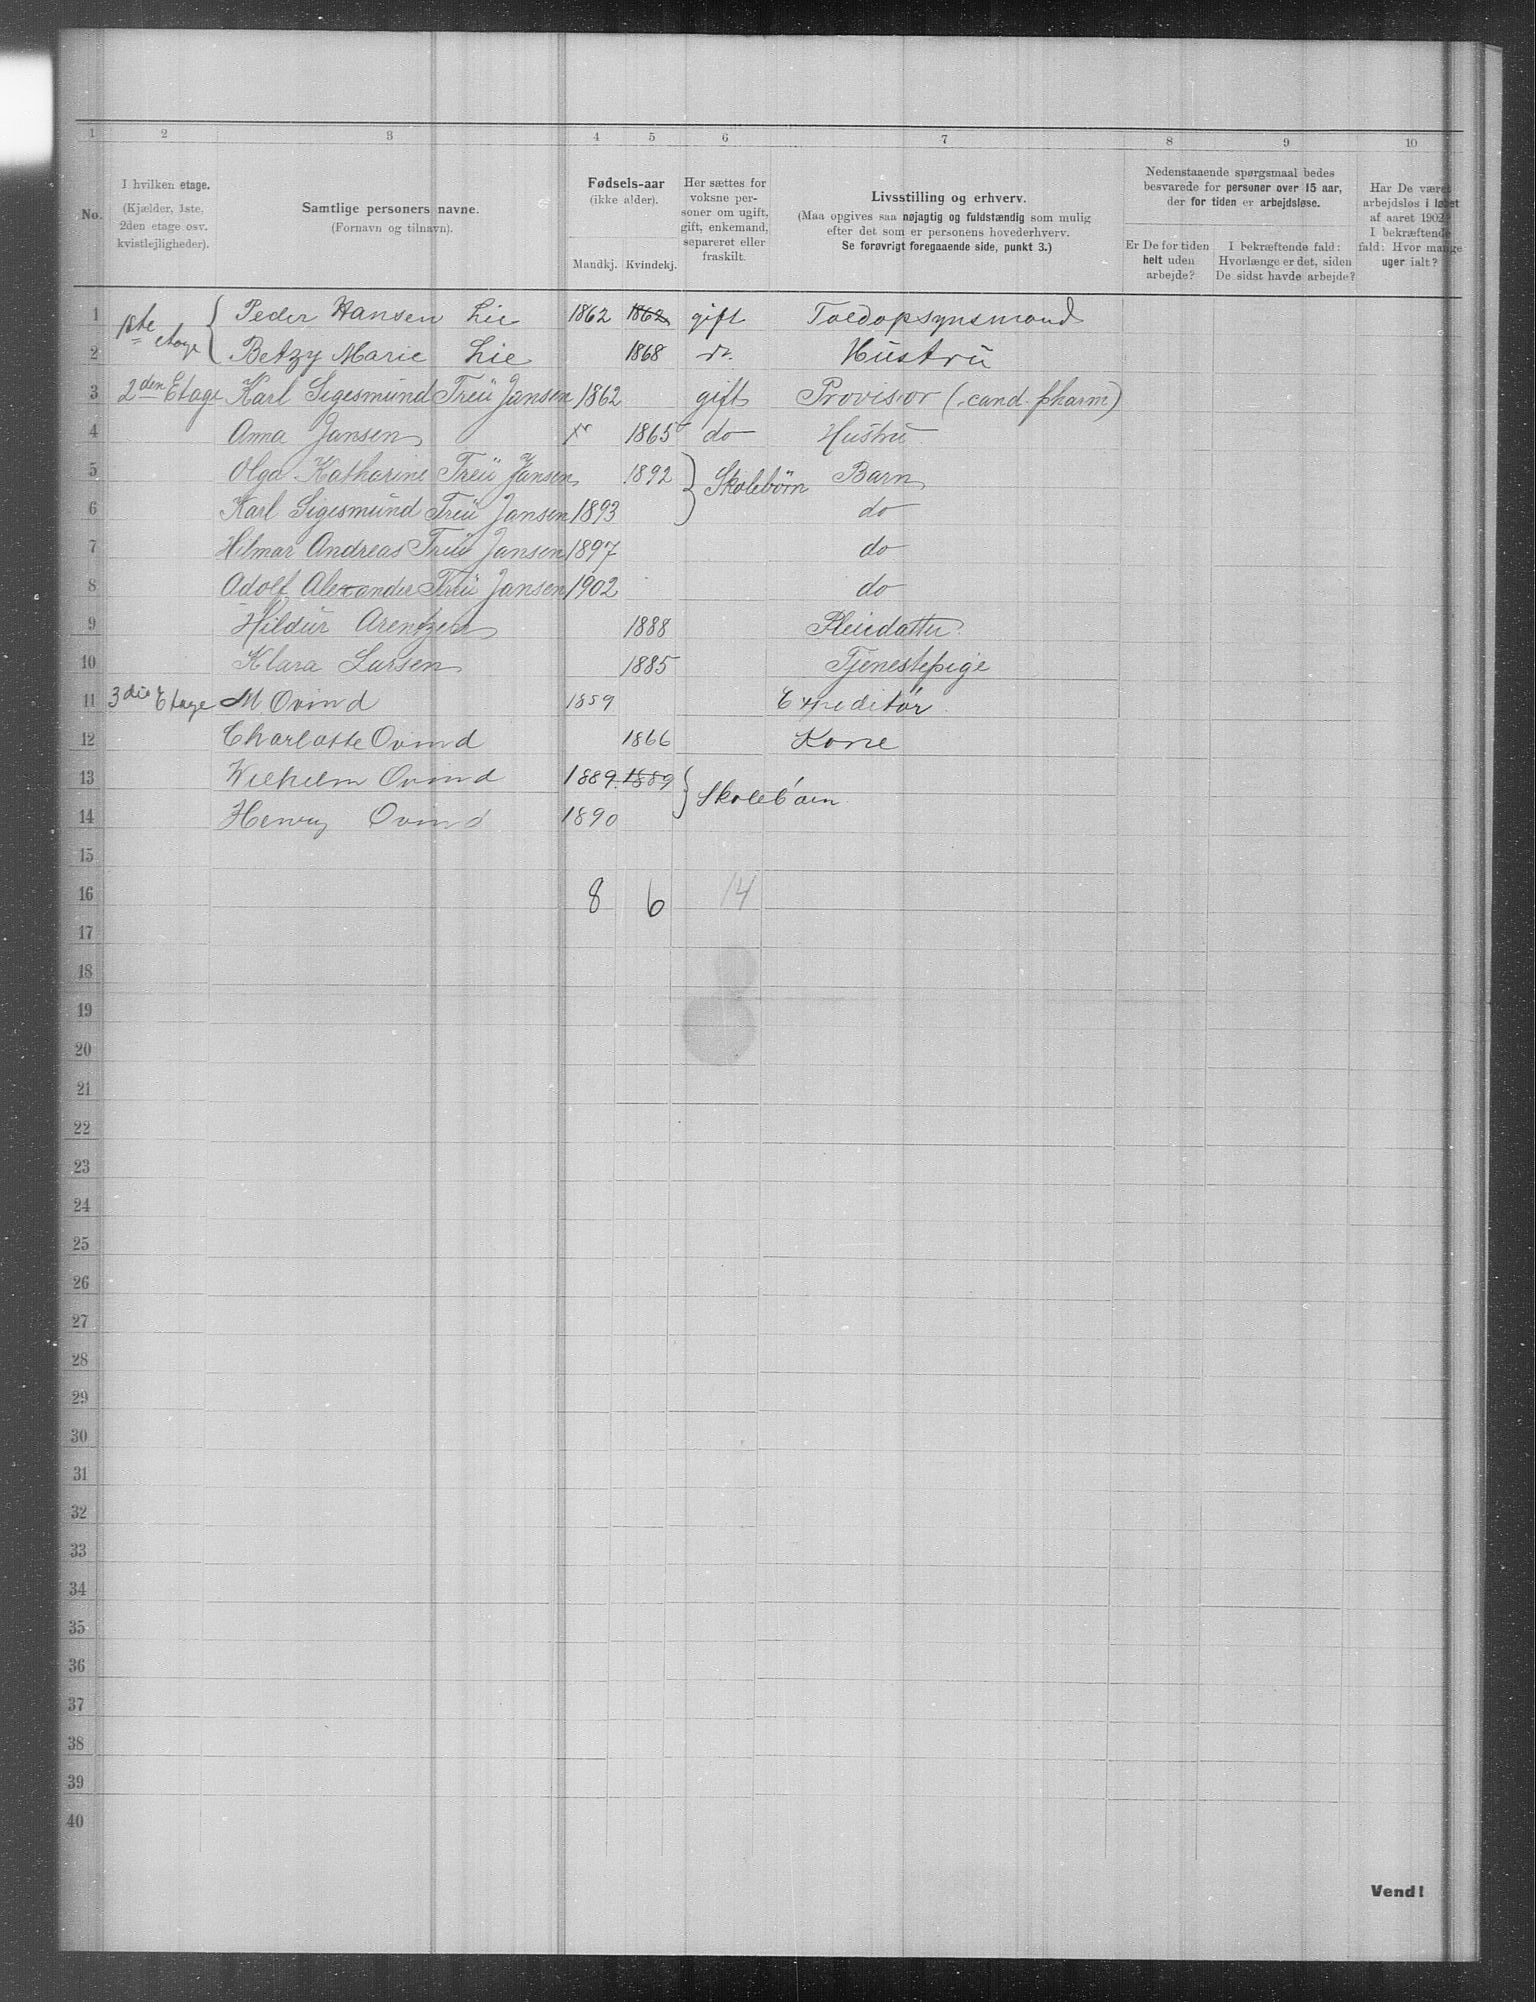 1 2 3 4 5 6 7 8 9 10
No.
I hvilken etage.
(Kjælder, 1ste.
2den etage osv.
kvistlejligheder).
Samtlige personers navne.
(Fornavn og tilnavn).
Fødsels-aar
(ikke alder).
Mandkj. Kvindekj.
Her sættes for
voksne per-
soner om ugift,
gift, enkemand,
separeret eller
fraskilt.
Livsstilling og erhverv.
(Maa opgives saa nøjagtig og fuldstændig som mulig
efter det som er personens hovederhverv.
Se forøvrigt foregaaende side, punkt 3.)
Nedenstaaende spørgsmaal bedes
besvarede for personer over 15 aar,
der for tiden er arbejdsløse.
Er De for tiden
helt uden
arbejde?
I bekræftende fald:
Hvorlænge er det, siden
De sidst havde arbejde?
Har De været
arbejdsløs i løbet
af aaret 1902?
I bekræftende
fald: Hvor mange
uger ialt?
1 1ste etage Peder Hansen Lie 1862 1862 gift Toldopsynsmand
2 Betzy Marie Lie 1868 do. Hustru
3 2den Etage Karl Sigesmund Treu Jansen 1862 gift Provisor (cand. pharm)
4 Anna Jansen 1865 do Hustru
5 Olga Katharine Treu Jansen 1892 Skolebørn Barn
6 Karl Sigesmund Treu Jansen 1893 do
7 Hilmar Andreas Treu Jansen 1897 do
8 Adolf Alexander Treu Jansen 1902 do
9 Hildur Arentzen 1888 Pleiedatter
10 Klara Larsen 1885 Tjenestepige
11 3die Etage M Ovind 1859 Expeditør
12 Charlotte Ovind 1866 Kone
13 Wilhelm Ovind 1889 1889 Skolebørn
14 Henry Ovind 1890
15
16 8 6 14
17
18
19
20
21
22
23
24
25
26
27
28
29
30
31
32
33
34
35
36
37
38
39
40
Vend!